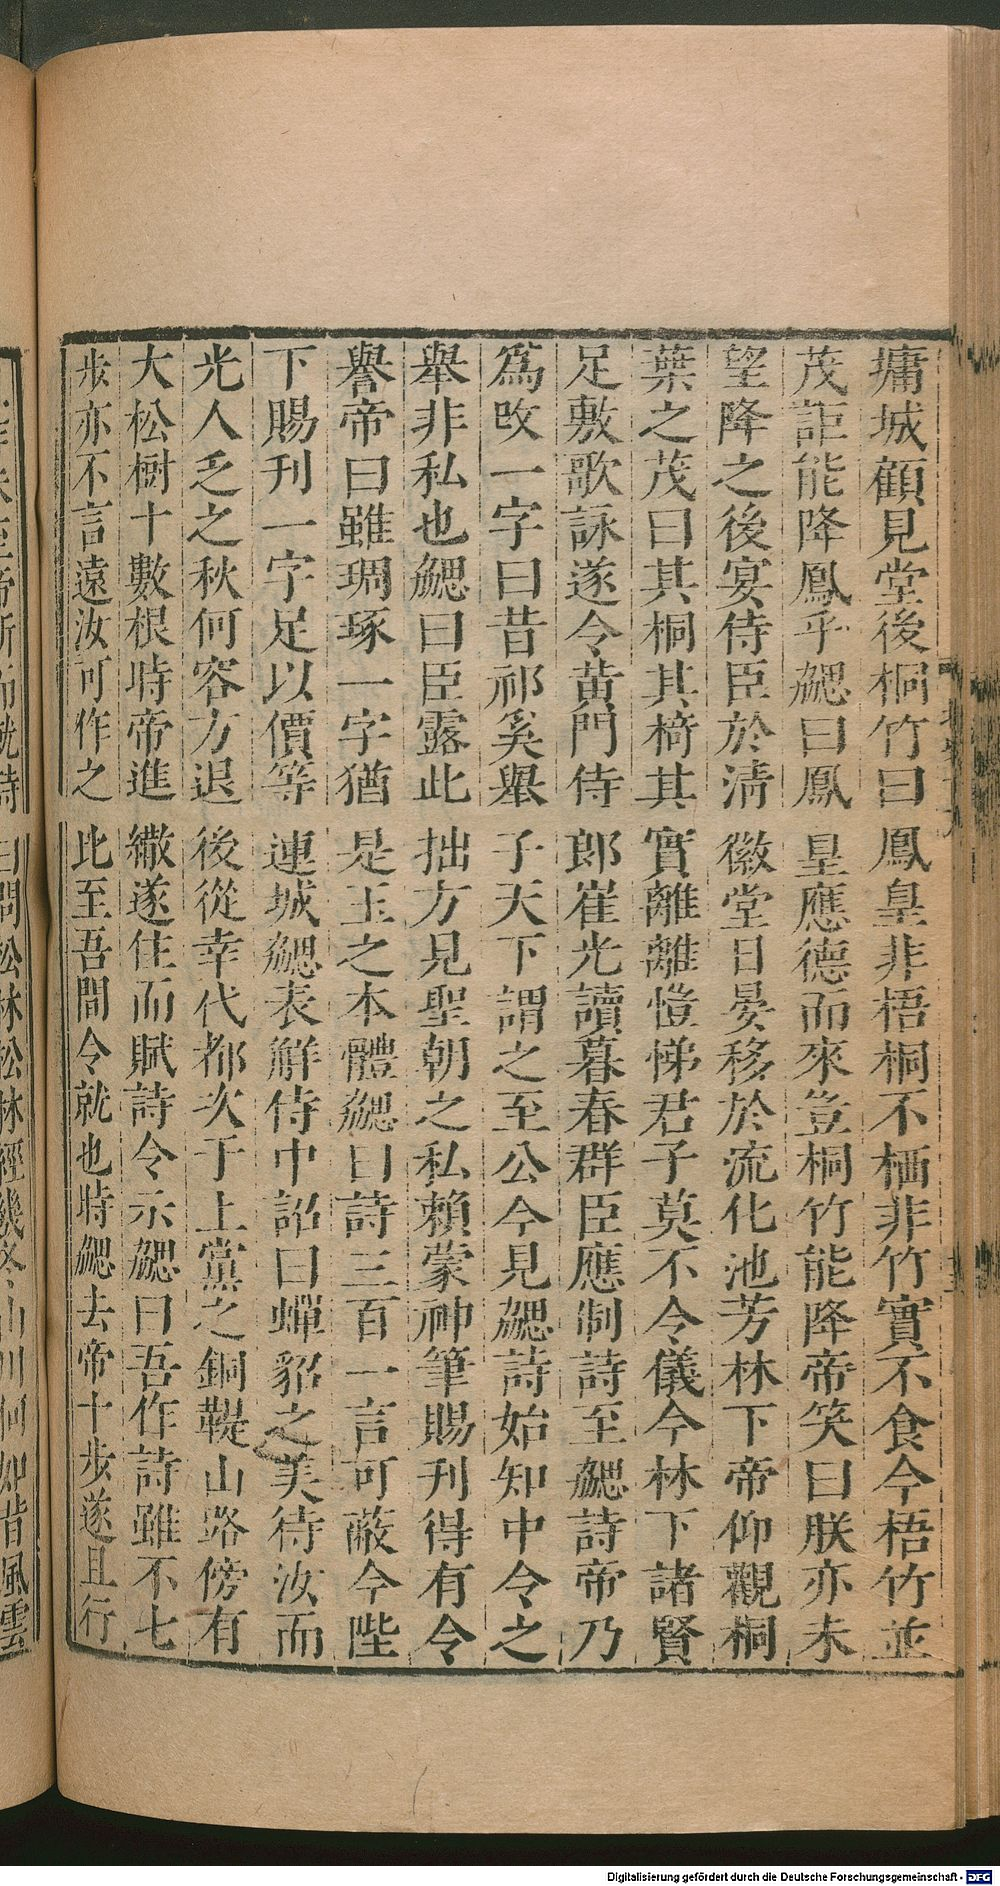 墉城顧見堂後桐竹曰鳳皇非梧桐不栖非竹實不食今梧竹並
茂詎能降鳳乎勰曰鳳皇應德而來豈桐竹能降帝笑曰朕亦未
望降之後宴侍臣於清徽堂日晏移於流化池芳林下帝仰觀桐
葉之茂曰其桐其椅其實離離愷悌君子莫不令儀今林下諸賢
足敷歌詠遂令黃門侍郎崔光讀暮春群臣應制詩至勰詩帝乃
爲攺一字曰昔祁奚舉子天下謂之至公今見勰詩始知中令之
舉非私也勰曰臣露此拙方見聖朝之私賴蒙神筆賜刊得有令
譽帝曰雖琱琢一字猶是玉之本體勰曰詩三百一言可蔽今陛
下賜刊一字足以價等連城勰表解侍中詔曰蟬貂之美待汝而
光人乏之秋何容方退後從幸代都次于上黨之銅鞮山路傍有
大松樹十數根時帝進繖遂住而賦詩令示勰曰吾作詩雖不七
步亦不言遠汝可作之比至吾間令就也時勰去帝十步遂且行
曰問松林松林經幾冬山川何如昔風雲
Digitalisierung gefördert durch die Deutsche Forschungsgemeinschaft - DFG